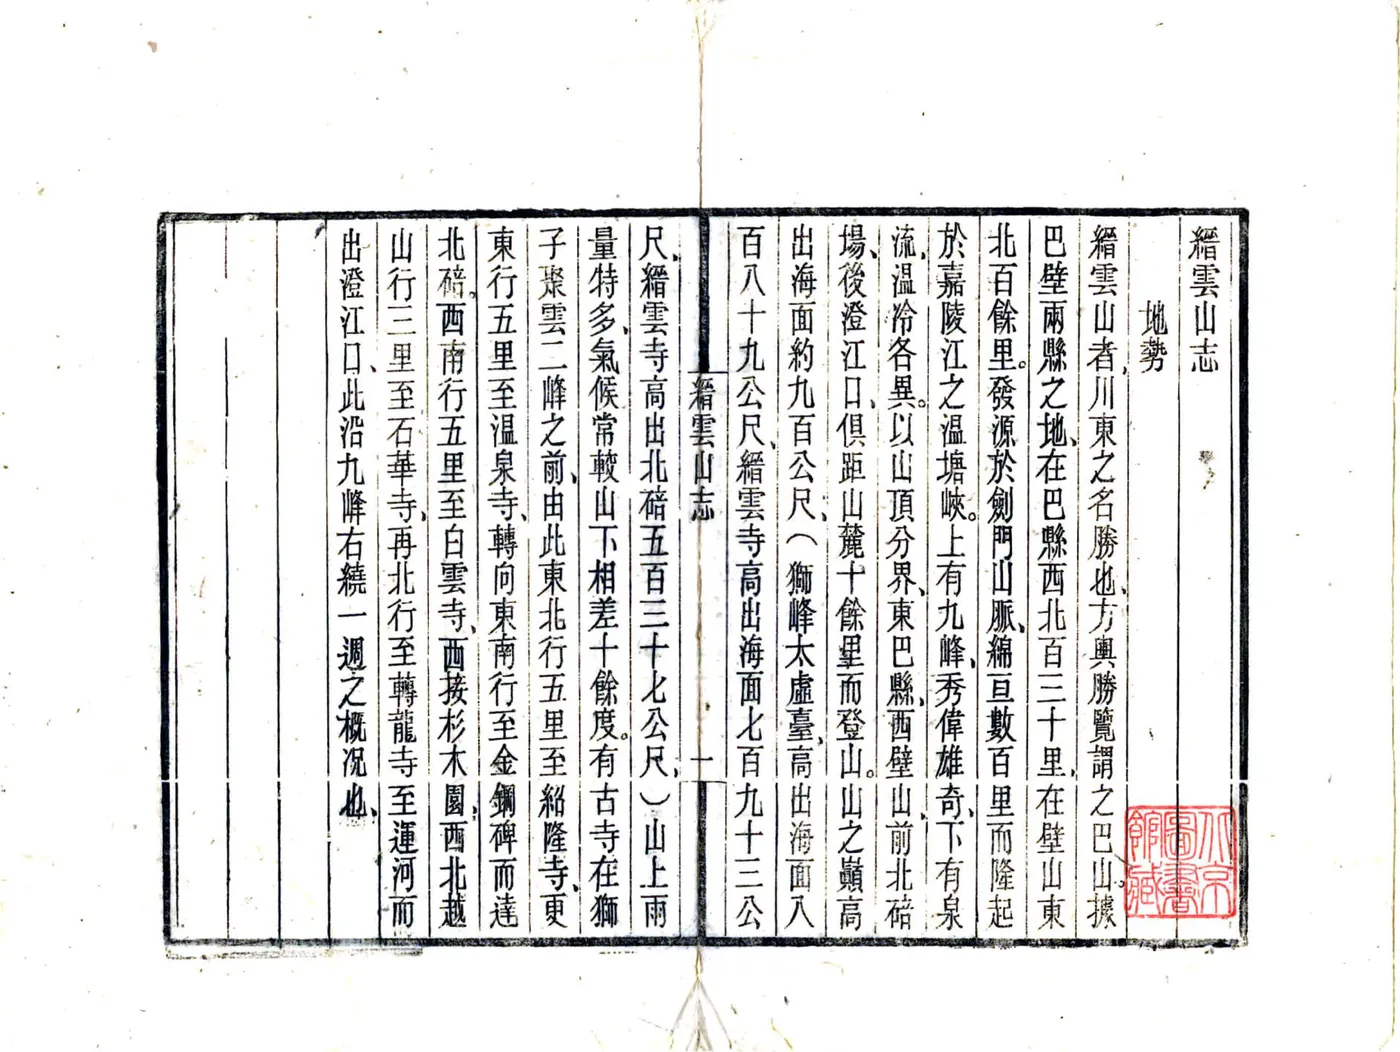 縉雲山志
地勢
縉雲山者、川東之名勝也、方輿勝覽謂之巴山。據
巴璧兩縣之地、在巴縣西北百三十里、在璧山東
北百餘里。發源於劍門山脈、綿亘數百里而隆起
於嘉陵江之溫塘峽。上有九峰、秀偉雄奇、下有泉
流、溫冷各異。以山頂分界、東巴縣、西璧山、前北碚
場、後澄江口、俱距山麓十餘里而登山。山之巔高
出海面約九百公尺、(獅峰太虛臺、高出海面八
百八十九公尺、縉雲寺高出海面七百九十三公
縉雲山志
一
尺、縉雲寺高出北碚五百三十七公尺、)山上雨
量特多、氣候常較山下相差十餘度。有古寺在獅
子聚雲二峰之前、由此東北行五里至紹隆寺、更
東行五里至溫泉寺、轉向東南行至金鋼碑而達
北碚。西南行五里至白雲寺、西接杉木園、西北越
山行三里至石華寺、再北行至轉龍寺至運河而
出澄江口、此沿九峰右繞一週之概況也、
北京圖書館藏